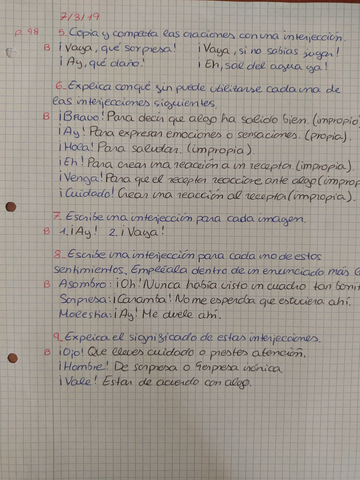 7/3/19
p. 98 5. Copia y completa las oraciones con una interjección.
B ¡Vaya, qué sorpresa! ¡Vaya, si no sabías jugar!
¡Ay, qué daño! ¡Eh, sal del agua ya!
6. Explica con qué fin puede utilizarse cada una de
las interjecciones siguientes.
B ¡Bravo! Para decir que algo ha salido bien. (impropio
¡Ay! Para expresar emociones o sensaciones. (propia).
¡Hola! Para saludar. (impropia).
¡Eh! Para crear una reacción a un receptor (impropia).
¡Venga! Para que el receptor reaccione ante algo (improp
¡Cuidado! Crear una reacción al receptor (impropia).
7. Escribe una interjección para cada imagen.
B 1. ¡Ay! 2. ¡Vaya!
8. Escribe una interjección para cada uno de estos
sentimientos. Empléala dentro de un enunciado más
B Asombro: ¡Oh! Nunca había visto un cuadro tan boni
Sorpresa: ¡Caramba! No me esperaba que estuviera ahí.
Molestia: ¡Ay! Me duele ahí.
9. Explica el significado de estas interjecciones.
B ¡Ojo! Que lleves cuidado o prestes atención.
¡Hombre! De sorpresa o sorpresa irónica.
¡Vale! Estar de acuerdo con algo.